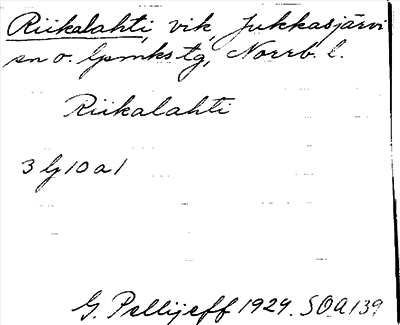 Riikalahti, vik, Jukkasjärvi
sn o. lpmkstg, Norrb. l.
Riikalahti
3 lj 10 a 1
G. Pellijeff 1929. SOA 139